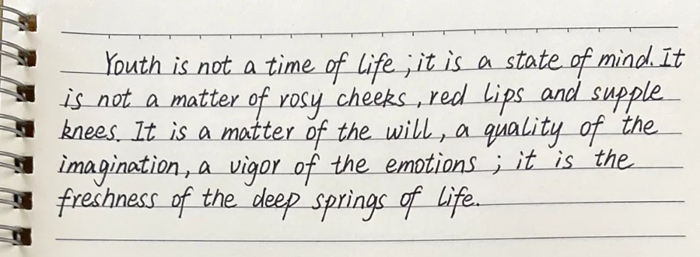 Youth is not a time of life; it is a state of mind. It
is not a matter of rosy cheeks, red lips and supple
knees. It is a matter of the will, a quality of the
imagination, a vigor of the emotions; it is the
freshness of the deep springs of life.